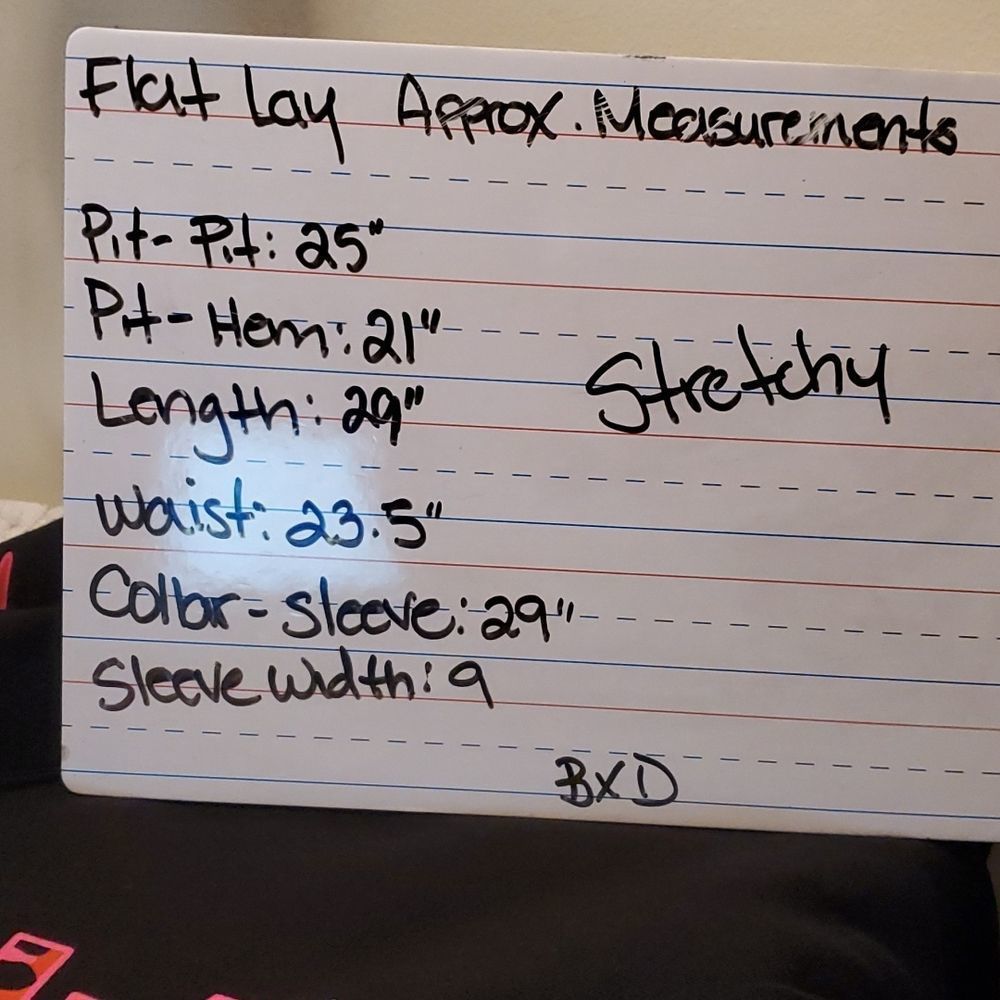 Flat Lay Approx. Measurements
Pit-Pit: 25"
Pit-Hem: 21"
Length: 29"
Stretchy
Waist: 23.5"
Collar-Sleeve: 29"
Sleeve Width: 9
BXD